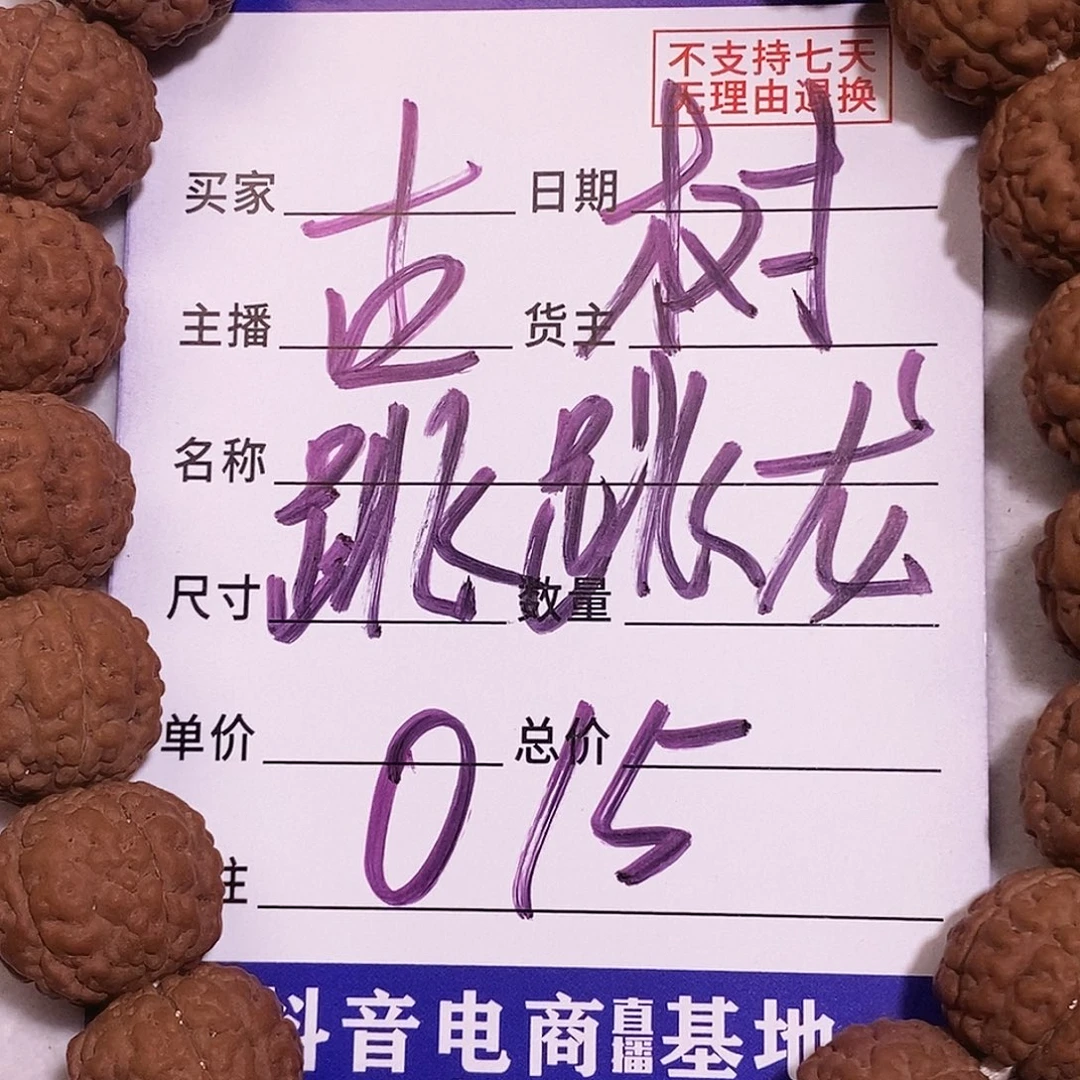 不支持七天
无理由退换
买家 日期
古树
主播 货主
名称
跳跳龙
尺寸 数量
单价 总价
015
注
抖音电商直播基地